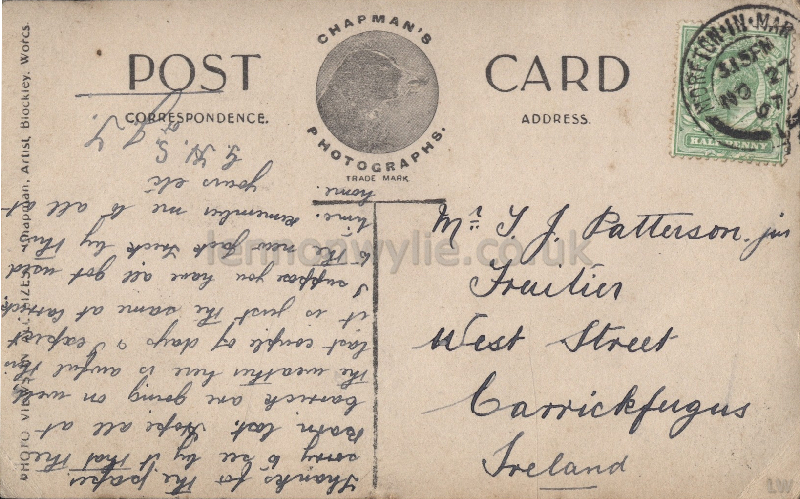 POST CARD
CHAPMAN'S
PHOTOGRAPHS.
TRADE MARK
CORRESPONDENCE.
ADDRESS.
MORETON-IN-MAR
3.15PM
NO 27
07
HALFPENNY
Thanks for the paper
sorry to see by it that the
Batn. lost. Hope all at
Carrick are going on well
the weather here is awful this
last couple of days & I expect
it is just the same at Carrick.
I suppose you have all got used
to the new Jack Frck by this
time. Remember me to all at
home.
Yours etc
G. H. S.
Mr. T. J. Patterson. jun
Fruitier
West Street
Carrickfergus
Ireland
Chapman, Artist, Blockley, Worcs.
lennonwylie.co.uk
LW